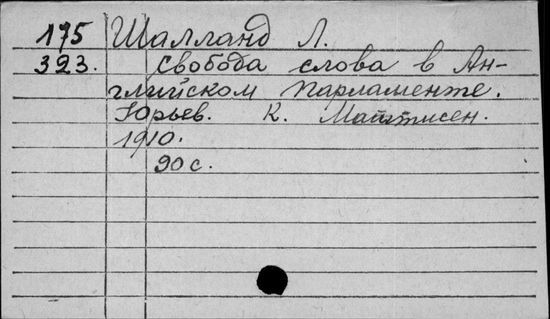 175 Шалланд Л.
323. Свобода слова в Ан-
глийском парламенте.
Юрьев. К. Маттисен.
1910.
90 с.